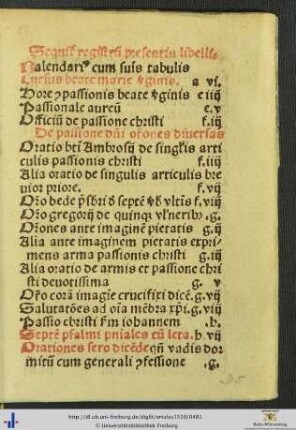 Sequit̉ registrū presentis libelli.
Kalendariꝰ cum suis tabulis
Cursus beate marie v̉ginis. a vi.
Hore ꝯpassionis beate v̉ginis e iiij
Passionale aureū e.v
Officiū de passione christi f.iij
De passione dn̄i or̄ones diversas
Oratio bt̄i Ambrosij de singl̉is arti
culis passionis christi f.iij
Alia oratio de singulis articulis bre
vior priore. f.vij
Or̄o bede p̄sbr̄i d̉ septē v̉b̉ vlt̄is f.vij
Or̄o gregorij de quinqꝫ vl̉nerib̉ .g.
Or̄ones ante imaginē pietatis g.ij
Alia ante imaginem pietatis expri
mens arma passionis christi g.iij
Alia oratio de armis et passione chri
sti devotissima g. v
Or̄o corā imagīe crucifixi dicē.g.vij
Salutatōes ad oīa mēbra xp̄i.g.vij
Passio christi fm̄ iohannem .h.
Septē psalmi pn̄iales cū leta. h.vij
Orationes sero dicēde qn̄ vadis dor
mitū cum generali ꝯfessione .g.
95
http://dl.ub.uni-freiburg.de/diglit/ortulus1520/0481
© Universitätsbibliothek Freiburg
Baden-Württemberg